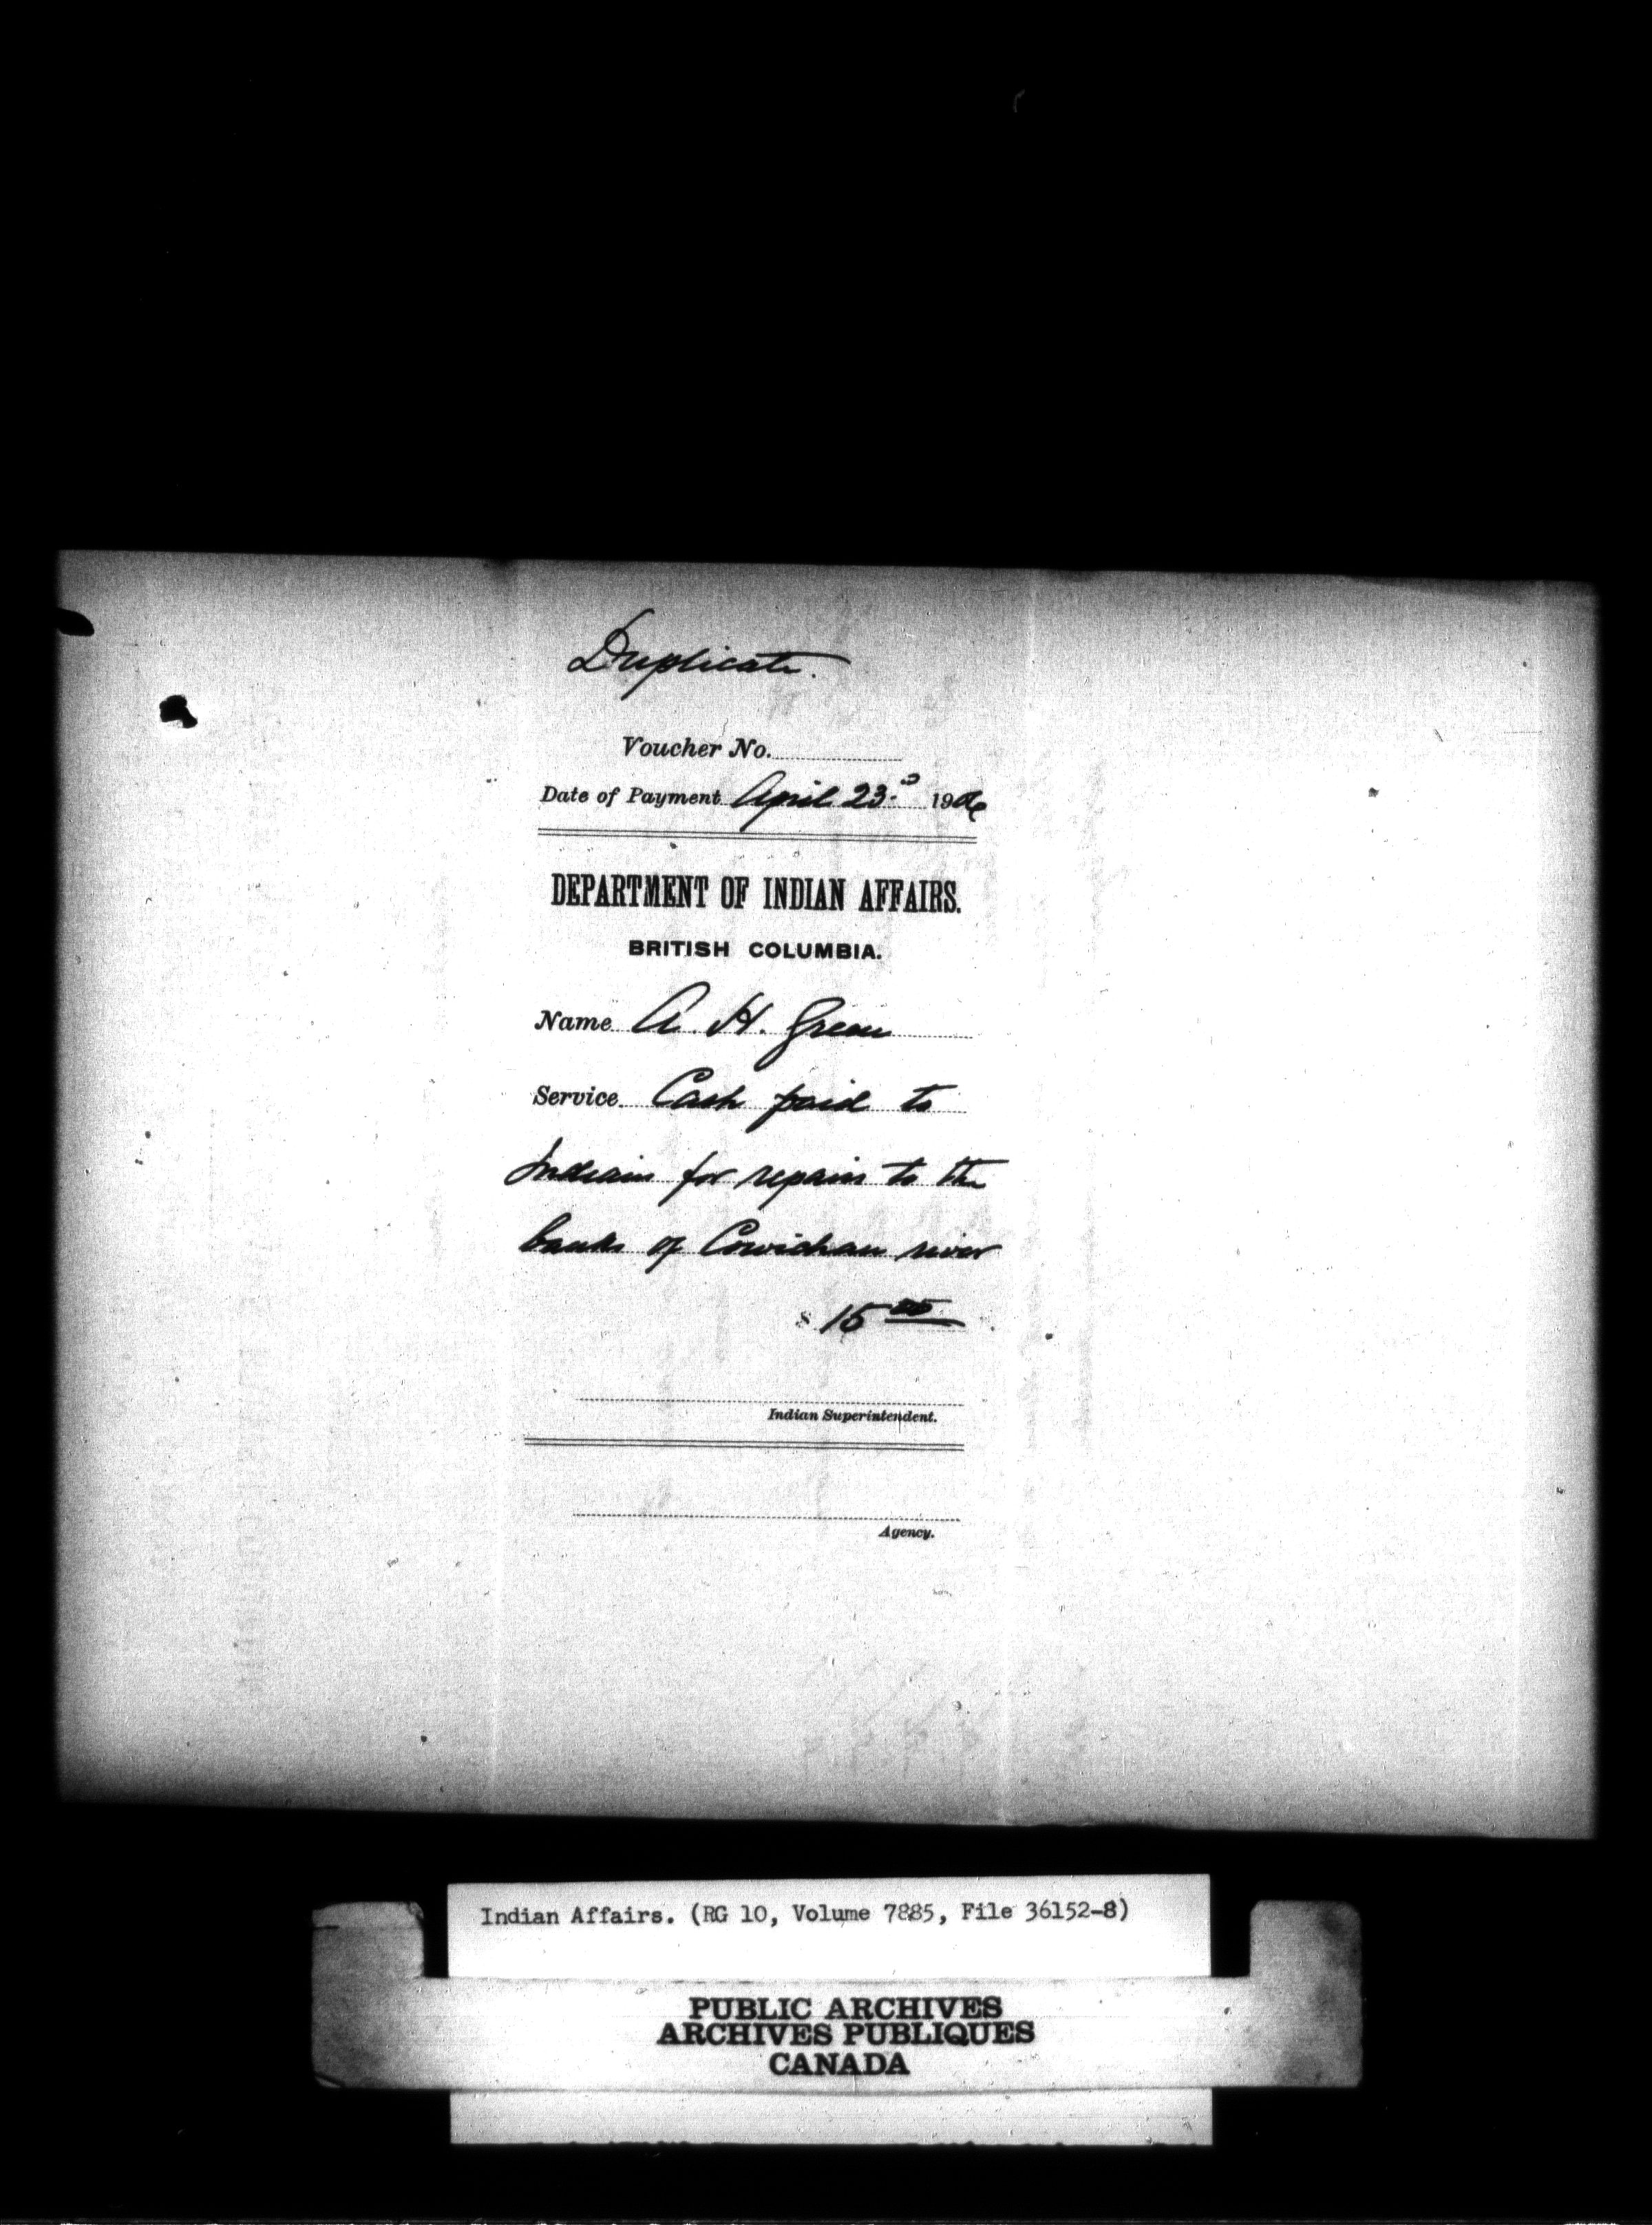 Duplicate.
Voucher No.
Date of Payment April 23.d 1906
DEPARTMENT OF INDIAN AFFAIRS.
BRITISH COLUMBIA.
Name A. H. Green
Service Cash paid to
Indians for repairs to the
banks of Cowichan river
$ 15
Indian Superintendent.
Agency.
Indian Affairs. (RG 10, Volume 7885, File 36152-8)
PUBLIC ARCHIVES
ARCHIVES PUBLIQUES
CANADA